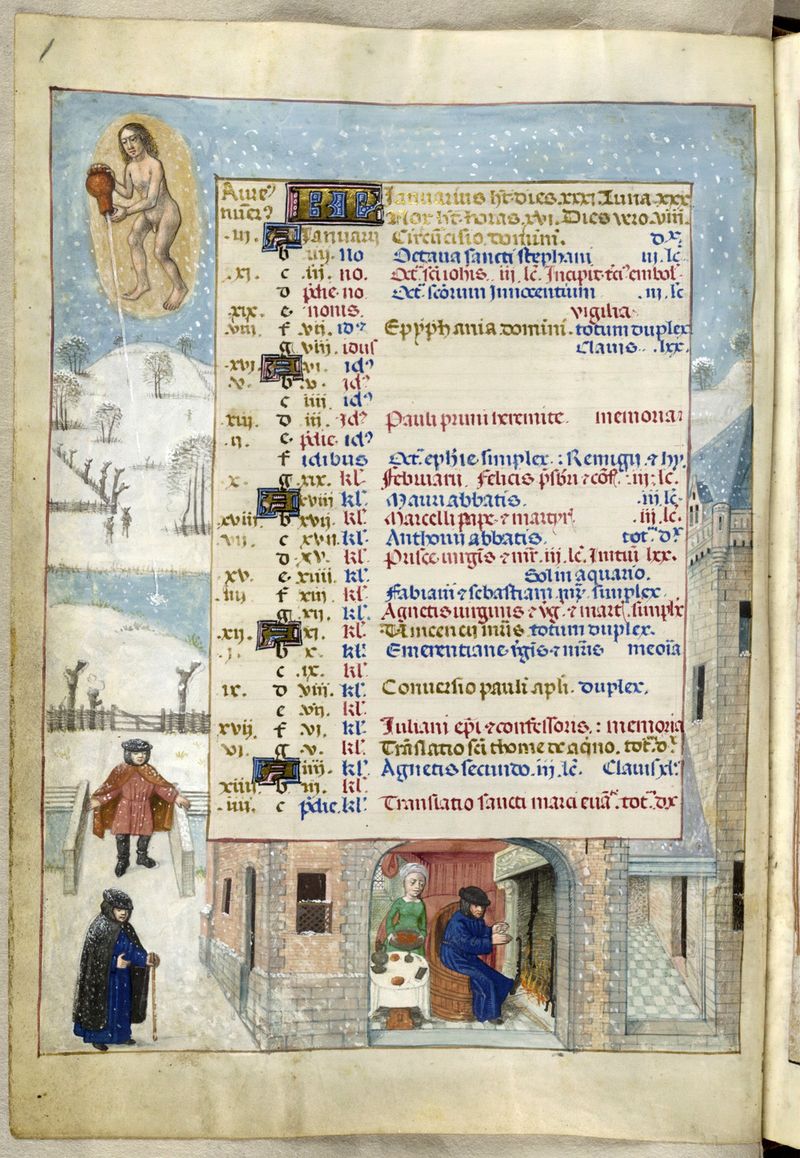 1
Aure⁹ KL Ianuarius h̄t dies. xxxi. luna. xxx
nūer⁹ Nox h̄t horas. xvi. Dies vero. viii.
.iii. A Ianuarii Circūcisio domini. dx̄.
b iiii. no Octava sancti stephani iii. lc̄
.xi. c .iii. no. Oct̄. sc̄i iohīs. iii. lc̄. Incipit
d p̄die. no Oct̄. sc̄orum Innocentium .iii. lc̄
.xix. e nonis. vigilia
viii. f .vii. id⁹ Epyphania domini. totum duplex
g viii. idus Clavis. .lxx.
.xvi. A vi. id⁹
.v. b .v. id⁹
c iiii. id⁹
.xiii. d iii. id⁹ Pauli primi heremite. memoria
.ii. e p̄die. id⁹
f idibus Oct̄. ephīe. simplex. : Remigii. ⁊ hy.
.x. g .xix. kl̄. februarii. felicis p̄sbr̄i ⁊ cōf. .iii. lc̄.
A xviii kl̄. Mauri abbatis. .iii. lc̄.
xviii. b xvii. kl̄. Marcelli pape ⁊ martyr̄. .iii. lc̄.
.vii. c xvii. kl̄. Anthonii abbatis. tot̄. dx̄
d .xv. kl̄. Prisce virgīs ⁊ mr̄. iii. lc̄. Initiū lxx.
xv. e xiiii. kl̄. Sol in aquario.
.iiii. f xiii. kl̄. Fabiani ⁊ sebastiani mr̄. simplex.
g .xii. kl̄. Agnetis virginis ⁊ mart̄. simplx̄
.xii. A xi. kl̄. Vincencij mr̄is totum duplex.
.i. b x. kl̄. Emerentiane v̄gīs ⁊ mr̄is meōia
c .ix. kl̄.
ix. d viii. kl̄. Conversio pauli apl̄i. duplex.
e vii. kl̄.
xvii. f .vi. kl̄. Iuliani ep̄i ⁊ confessoris. : memoria
vi. g .v. kl̄. Trāslatio sc̄i thome de aqīno. tot̄. dx̄
A iiii. kl̄. Agnetis secundo. iii. lc̄. Clavis xl̄.
xiiii b iii. kl̄.
.iii. c p̄die. kl̄. Translatio sancti marci euā. tot̄. dx̄